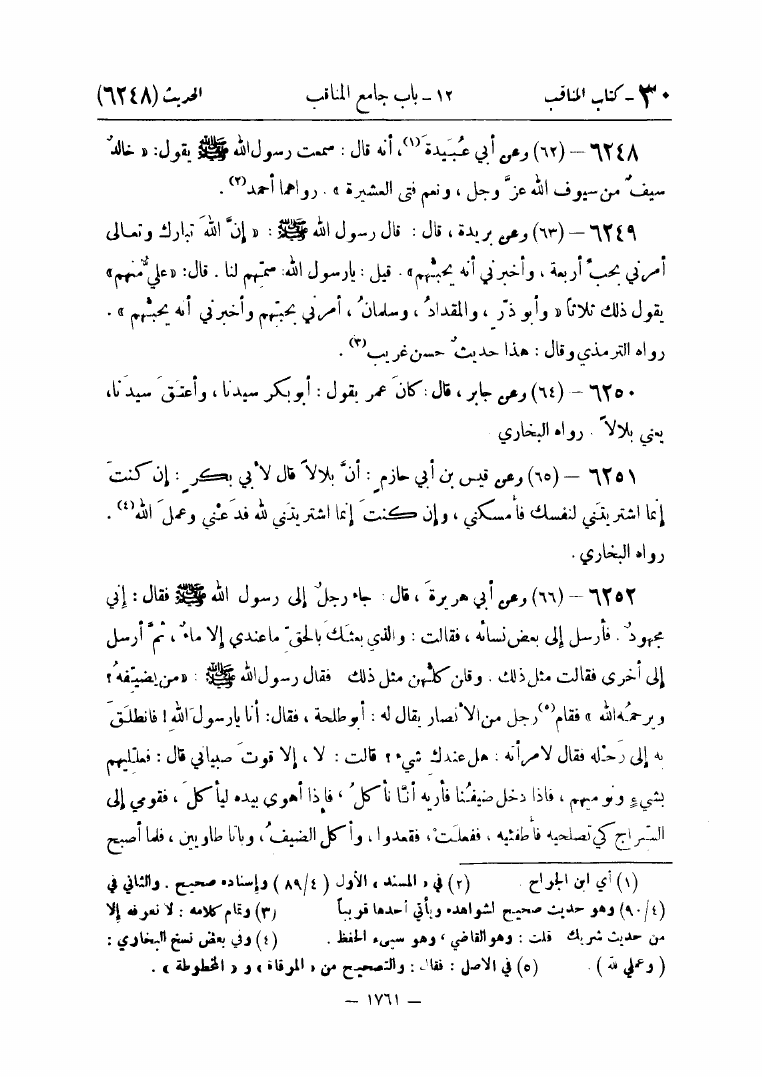 ٣٠ - كتاب المناقب ١٢ - باب جامع المناقب الحديث (٦٢٤٨)
٦٢٤٨ – (٦٢) وعن أبي عُبَيدةَ(١)، أنه قال : سمعت رسول الله ﷺ يقول: « خالدٌ
سيفٌ من سيوف الله عزَّ وجل ، ونعم فتى العشيرة » . رواهما أحمد(٢) .
٦٢٤٩ – (٦٣) وعن بريدة ، قال : قال رسول الله ﷺ : « إنَّ اللهَ تبارك وتعالى
أمرني بحبّ أربعة ، وأخبرني أنه يحبّهم» . قيل : يارسول الله: سمّهم لنا . قال: «عليٌّ منهم»
يقول ذلك ثلاثاً « وأبو ذرّ ، والمقدادُ ، وسلمانُ ، أمرني بحبّهم وأخبرني أنه يحبّهم » .
رواه الترمذي وقال : هذا حديثٌ حسن غريب(٣) .
٦٢٥٠ – (٦٤) وعن جابر ، قال : كانَ عمر يقول : أبو بكر سيدنا ، وأعتقَ سيدَنا،
يعني بلالاً . رواه البخاري
٦٢٥١ – (٦٥) وعن قيس بن أبي حازمٍ : أنَّ بلالاً قال لأبي بكرٍ : إن كنتَ
إنما اشتريتَني لنفسك فأمسكني ، وإن كنتَ إنما اشتريتَني لله فدَعْني وعملَ الله(٤) .
رواه البخاري .
٦٢٥٢ – (٦٦) وعن أبي هريرةَ ، قال : جاء رجلٌ إلى رسول الله ﷺ فقال : إني
مجهودٌ . فأرسل إلى بعض نسائه ، فقالت : والذي بعثكَ بالحقّ ما عندي إلا ماءٌ ، ثمَّ أرسل
إلى أخرى فقالت مثل ذلك . وقلن كلّهن مثل ذلك فقال رسول الله ﷺ : «من يضيّفهُ ؟
ويرحمُه الله » فقام(٥) رجل من الأنصار يقال له : أبو طلحة ، فقال: أنا يارسولَ الله ! فانطلقَ
به إلى رَحْله فقال لامرأته : هل عندك شيء ؟ قالت : لا ، إلا قوتَ صبياني قال : فعلّليهم
بشيءٍ ونوّميهم ، فاذا دخل ضيفُنا فأريه أنّا نأكلُ ، فإذا أهوى بيده ليأكلَ ، فقومي إلى
السّراج كي تصلحيه فأطفئيه ، ففعلتْ ، فقعدوا ، وأكل الضيفُ ، وباتا طاويين ، فلما أصبح
(١) أي ابن الجراح . (٢) في « المسند » الأول ( ٨٩/٤ ) وإسناده صحيح . والثاني في
(٩٠/٤) وهو حديث صحيح لشواهده ويأتي أحدها قريباً (٣) وتمام كلامه : لا نعرفه إلا
من حديث شريك قلت : وهو القاضي ، وهو سيىء الحفظ . (٤) وفي بعض نسخ البخاري :
( وعملي لله ) . (٥) في الاصل : فقال : والتصحيح من « المرقاة » و « المخطوطة » .
— ١٧٦١ —